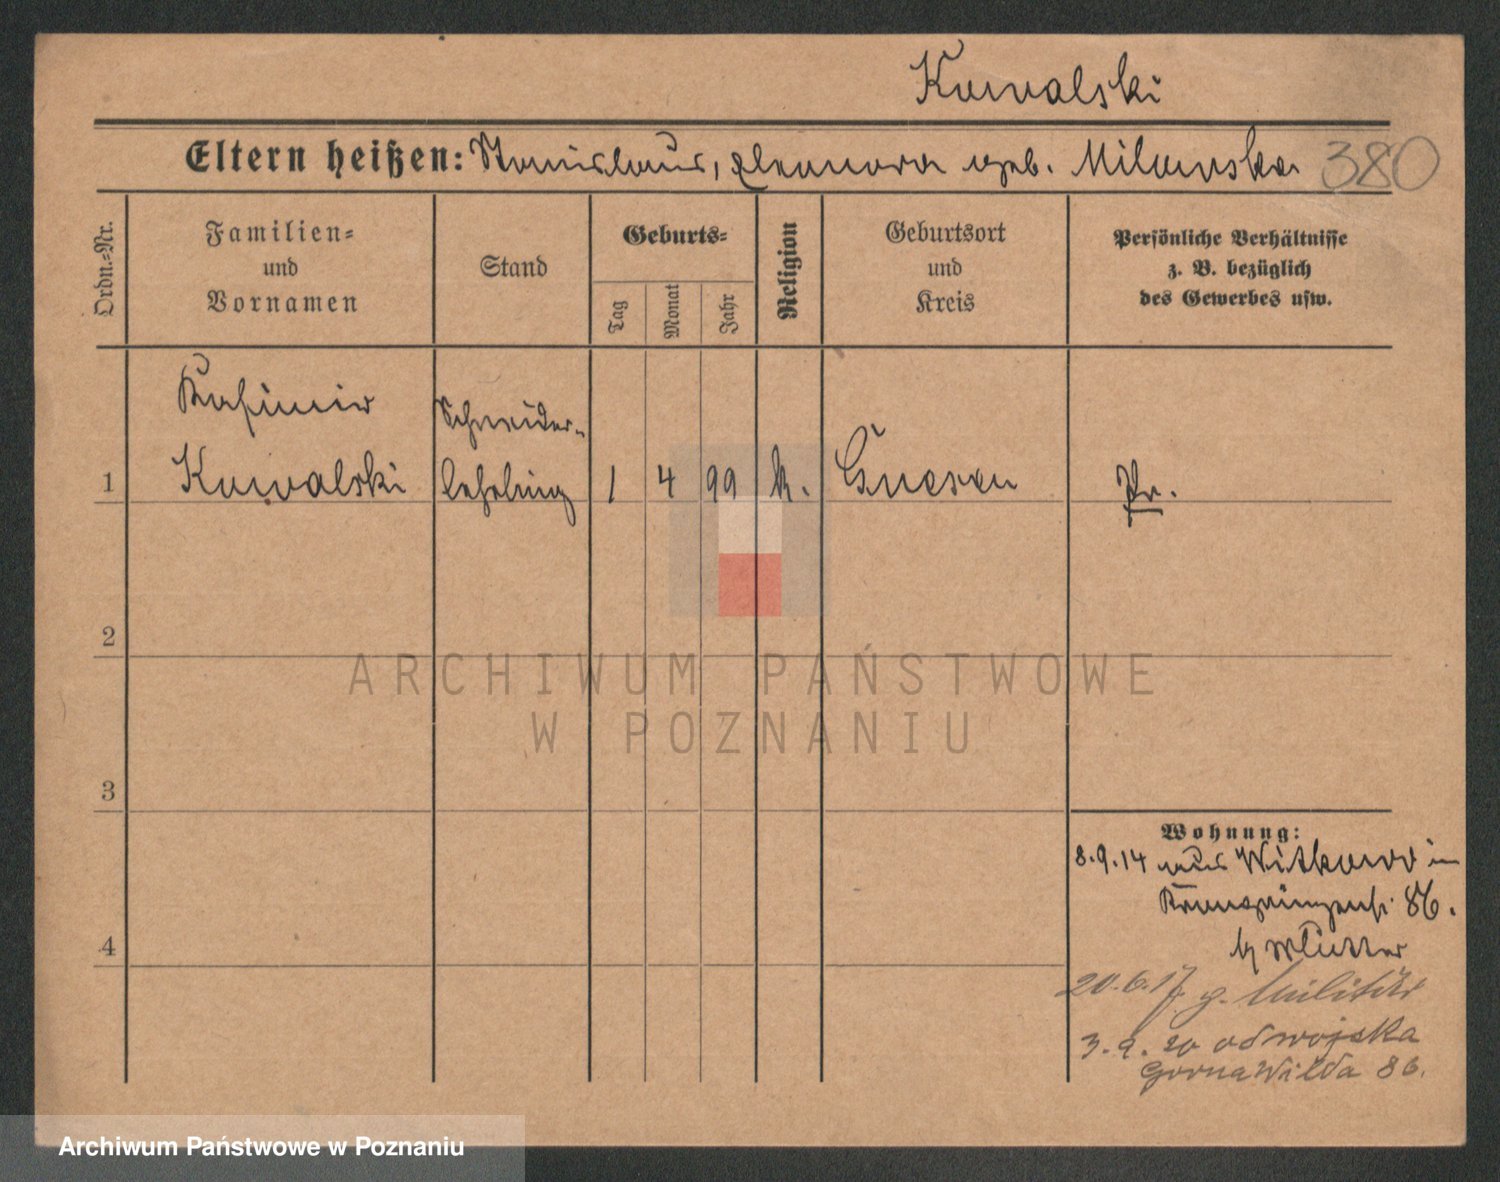 Kowalski
Eltern heißen: Stanislaus, Eleonora geb. Milewska 380
Ordn.=Nr.
Familien=
und
Vornamen
Stand
Geburts=
Tag
Monat
Jahr
Religion
Geburtsort
und
Kreis
Persönliche Verhältnisse
z. B. bezüglich
des Gewerbes usw.
Kasimir
Schneider-
1 Kowalski lehrling 1 4 99 k. Gnesen Pr.
2
3
4
Wohnung:
8.9.14 aus Witkowo in
Kronprinzenstr 86.
b/ Mutter
20.6.17 z. Militär
3.9.20 od wojska
Gorna Wilda 86.
ARCHIWUM PAŃSTWOWE
W POZNANIU
Archiwum Państwowe w Poznaniu